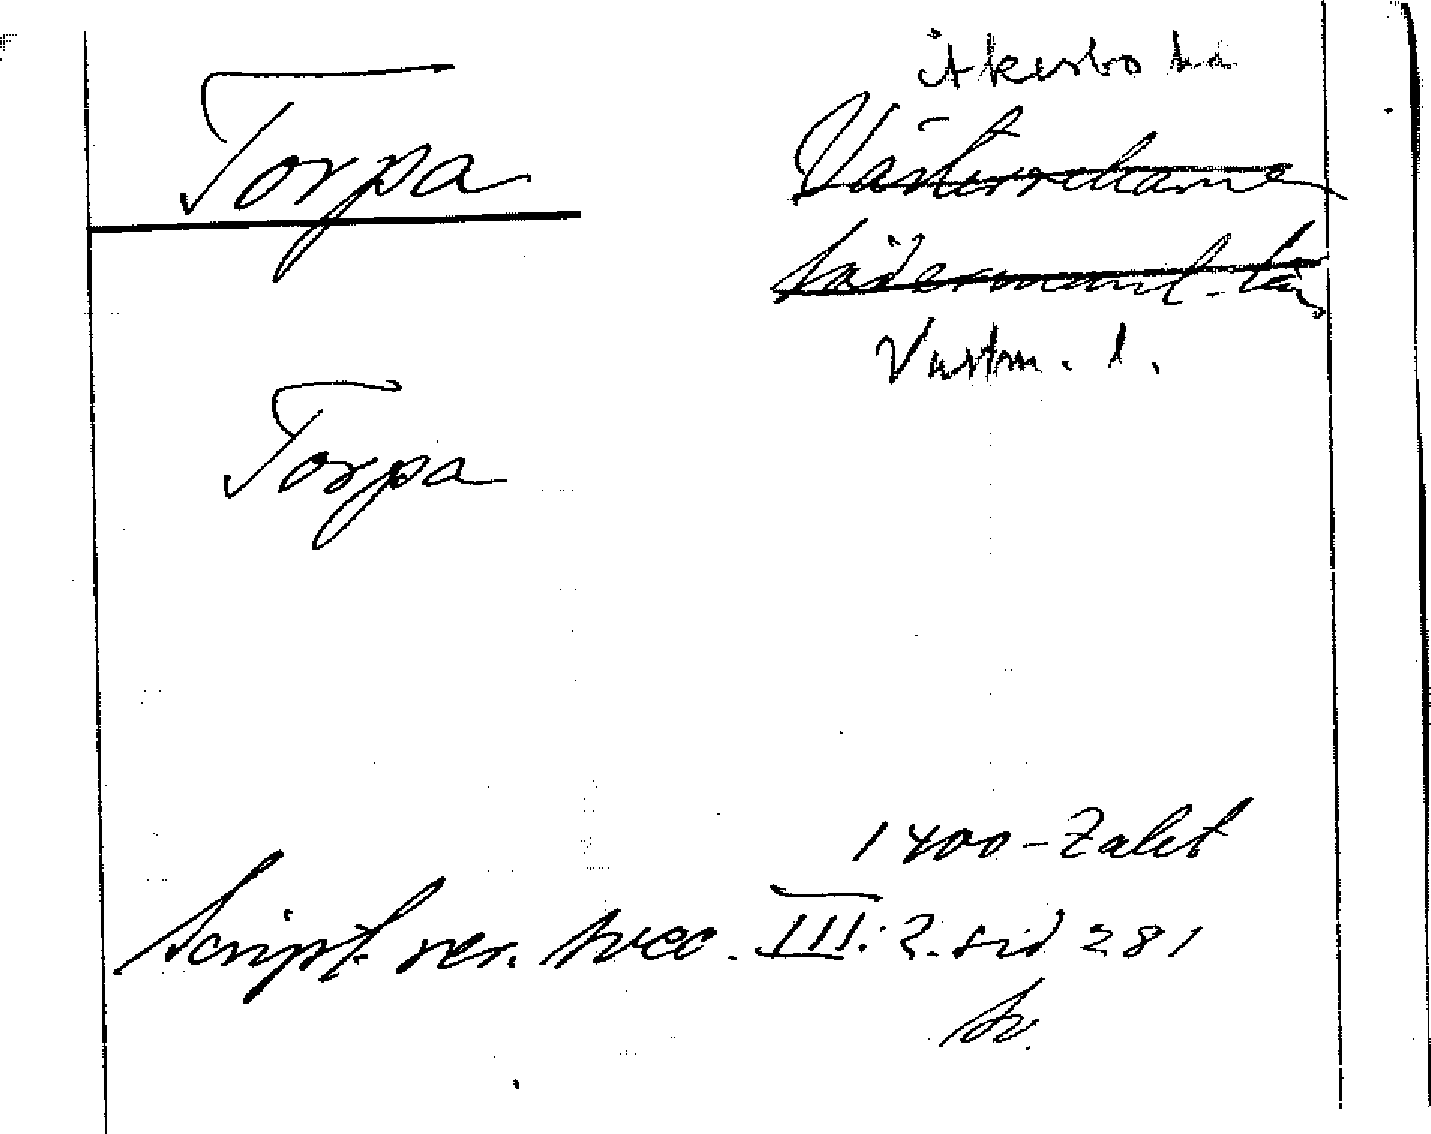 Torpa
Åkerbo hd
Västerrekarne
Södermanl. län
Västm. l.
Torpa
1400-talet
Script. rer. svec. III:2. sid 281
Sv.